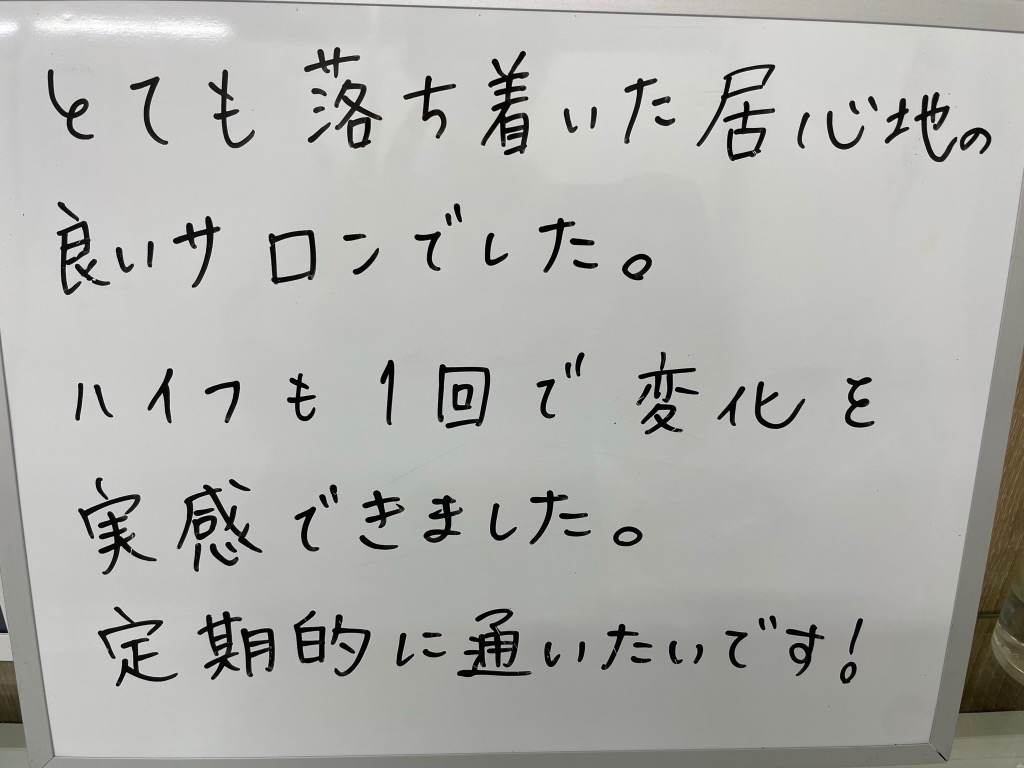 とても落ち着いた居心地の
良いサロンでした。
ハイフも1回で変化を
実感できました。
定期的に通いたいです!